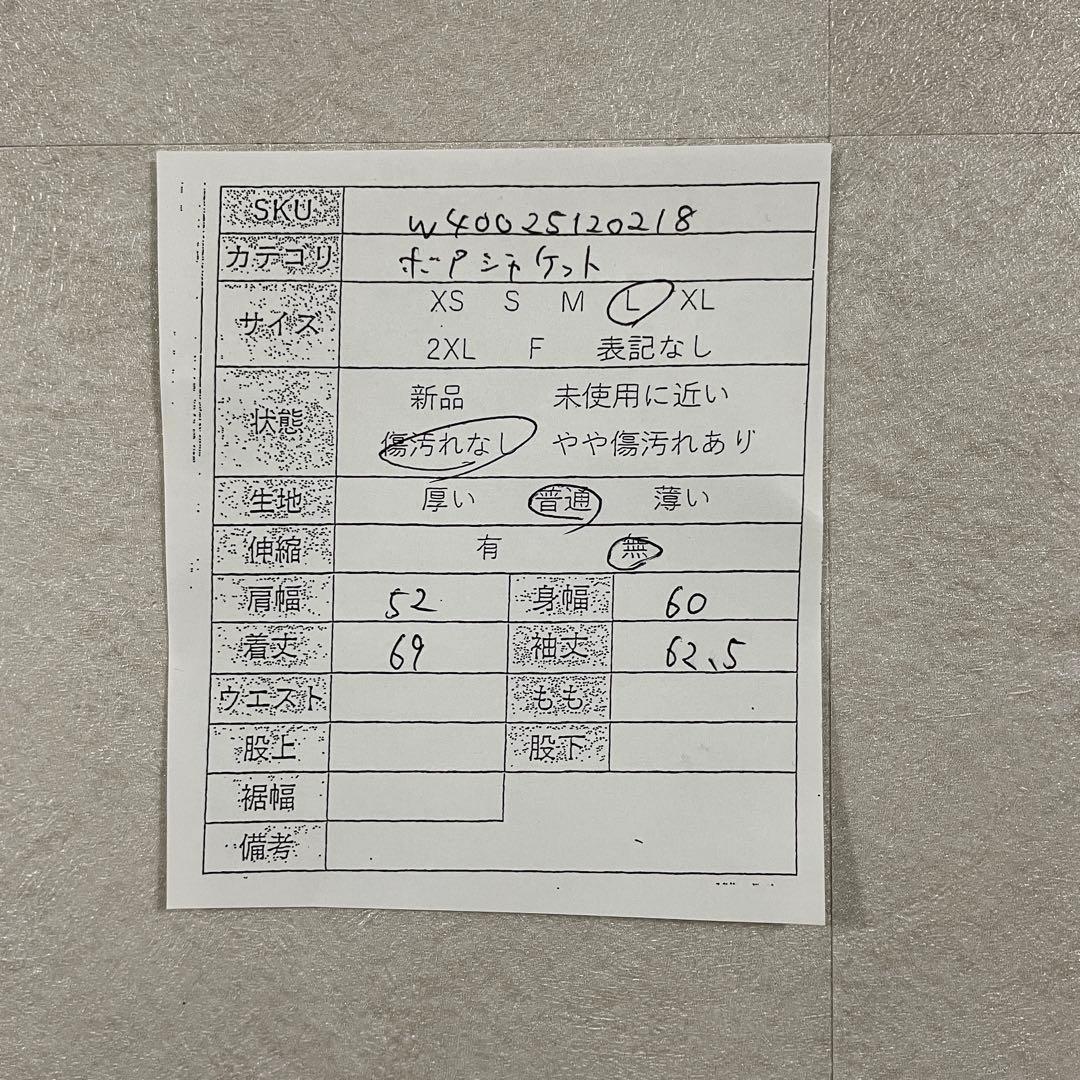 SKU w40025120218
カテゴリ ボアジャケット
サイズ XS S M L XL
2XL F 表記なし
状態 新品 未使用に近い
傷汚れなし やや傷汚れあり
生地 厚い 普通 薄い
伸縮 有 無
肩幅 52 身幅 60
着丈 69 袖丈 62.5
ウエスト もも
股上 股下
裾幅
備考